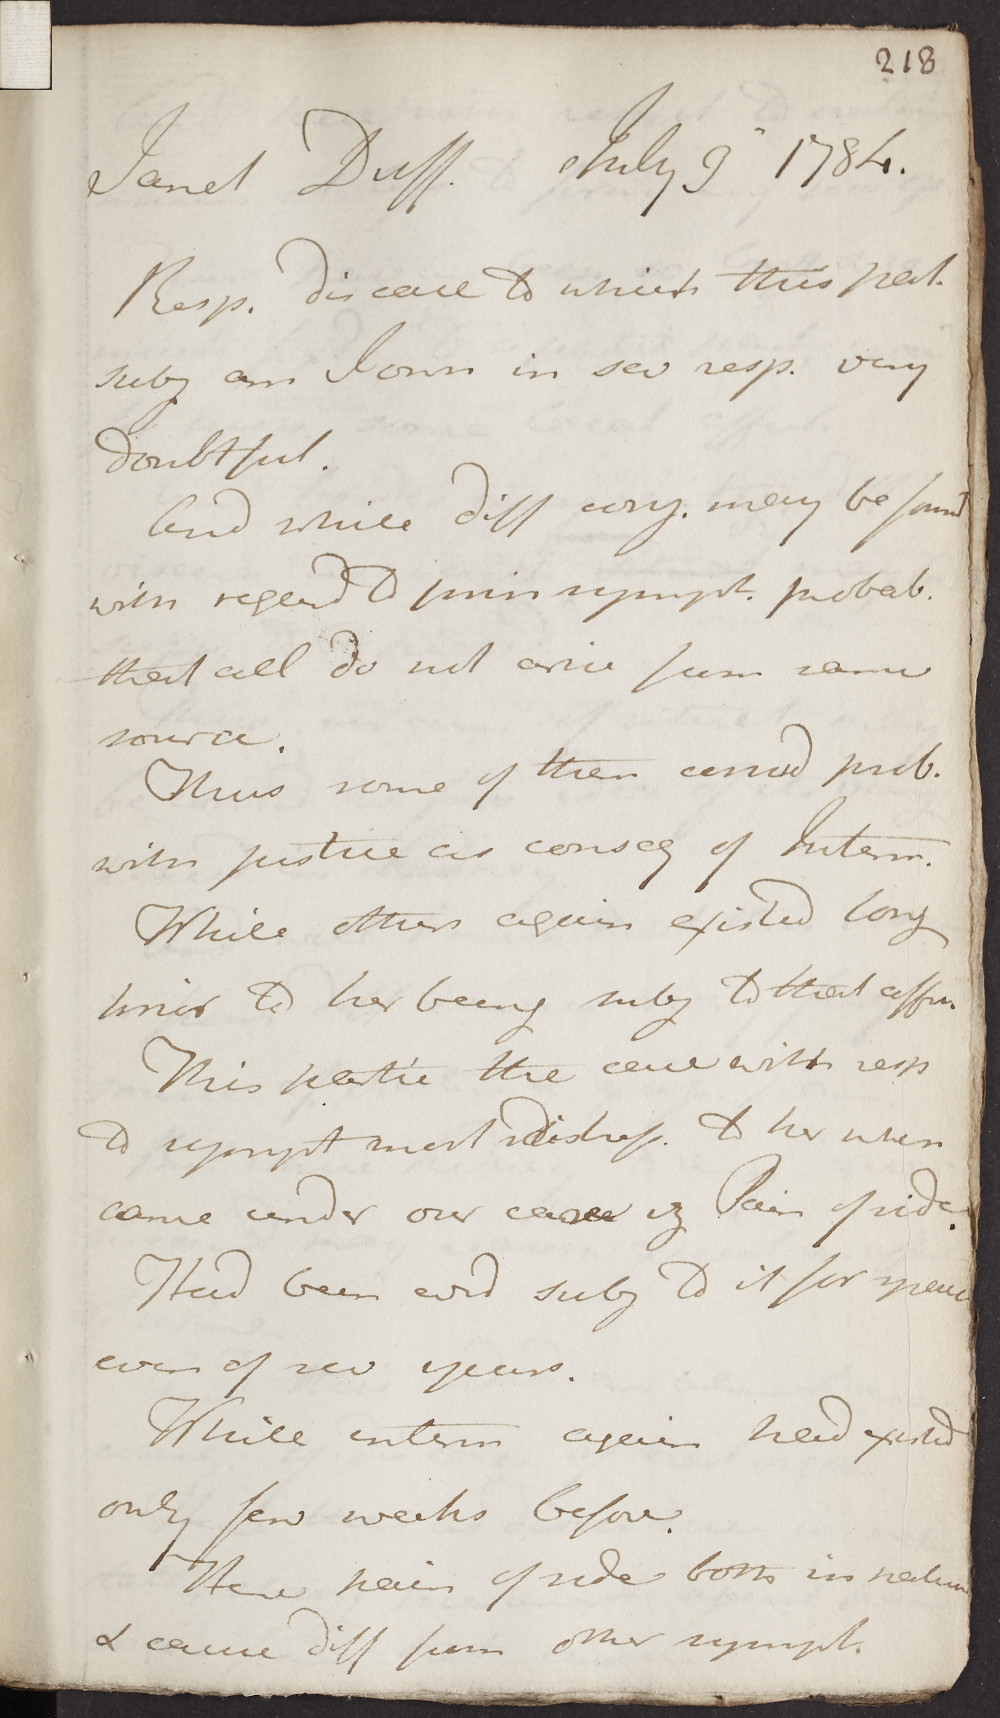 218
Janet Duff. July 9" 1784.
Resp. disease to which this pat.
subj am I own in sev resp. very
doubtful.
And while diff conj. may be found
with regard to prin sympt. probab.
that all do not arise from same
source.
Thus some of them consid prob.
with justice as conseq of Interm.
While others again existed long
prior to her being subj to that affn.
This partic the case with resp
to sympt most distress. to her when
came under our care viz Pain of side.
Had been cons'd subj to it for space
even of sev years.
While interm again had existed
only few weeks before.
Here pain of side both in nature
& cause diff from other sympt.